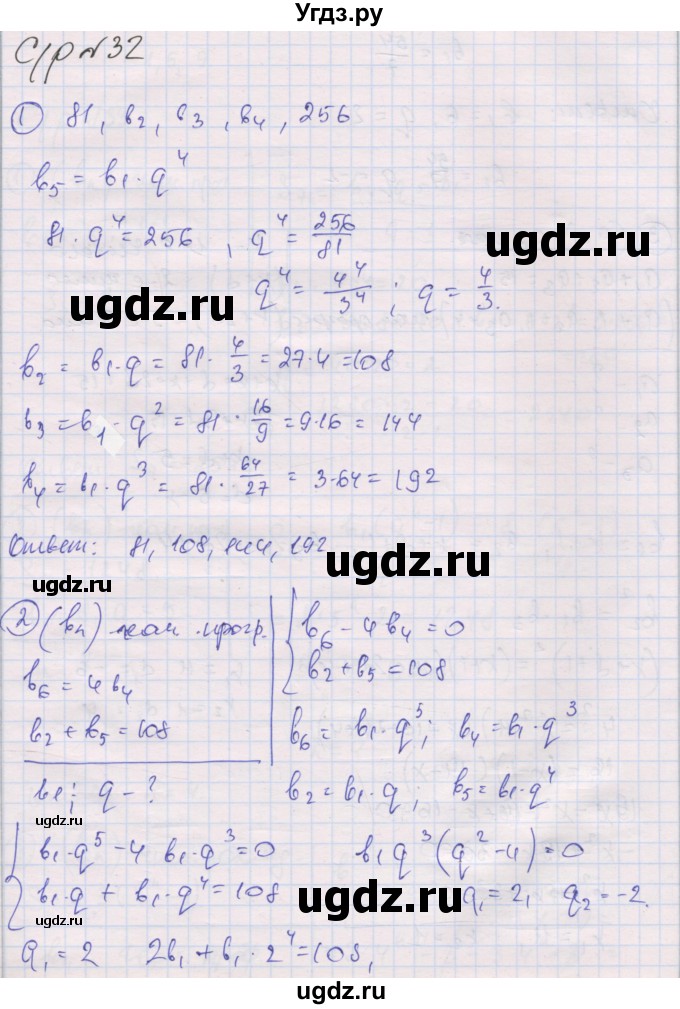 Угдз.ру
С/р №32
① 81, b₂, b₃, b₄, 256
b₅ = b₁ · q⁴
81 · q⁴ = 256, q⁴ = 256/81
q⁴ = 4⁴/3⁴; q = 4/3.
ugdz.ru ugdz.ru
b₂ = b₁ · q = 81 · 4/3 = 27 · 4 = 108
b₃ = b₁ · q² = 81 · 16/9 = 9 · 16 = 144
b₄ = b₁ · q³ = 81 · 64/27 = 3 · 64 = 192
Ответ: 81, 108, 144, 192
ugdz.ru
ugdz.ru
② (bₙ) прогр.
b₆ = 4b₄
b₂ + b₅ = 108
b₁; q - ?
ugdz.ru
{ b₆ - 4b₄ = 0
b₂ + b₅ = 108
b₆ = b₁ · q⁵; b₄ = b₁ · q³
b₂ = b₁ · q; b₅ = b₁ · q⁴
ugdz.ru
{ b₁ · q⁵ - 4 b₁ · q³ = 0
b₁ · q + b₁ · q⁴ = 108
b₁q³(q² - 4) = 0
q₁ = 2, q₂ = -2.
ugdz.ru ugdz.ru
q₁ = 2 2b₁ + b₁ · 2⁴ = 108,
ugdz.ru